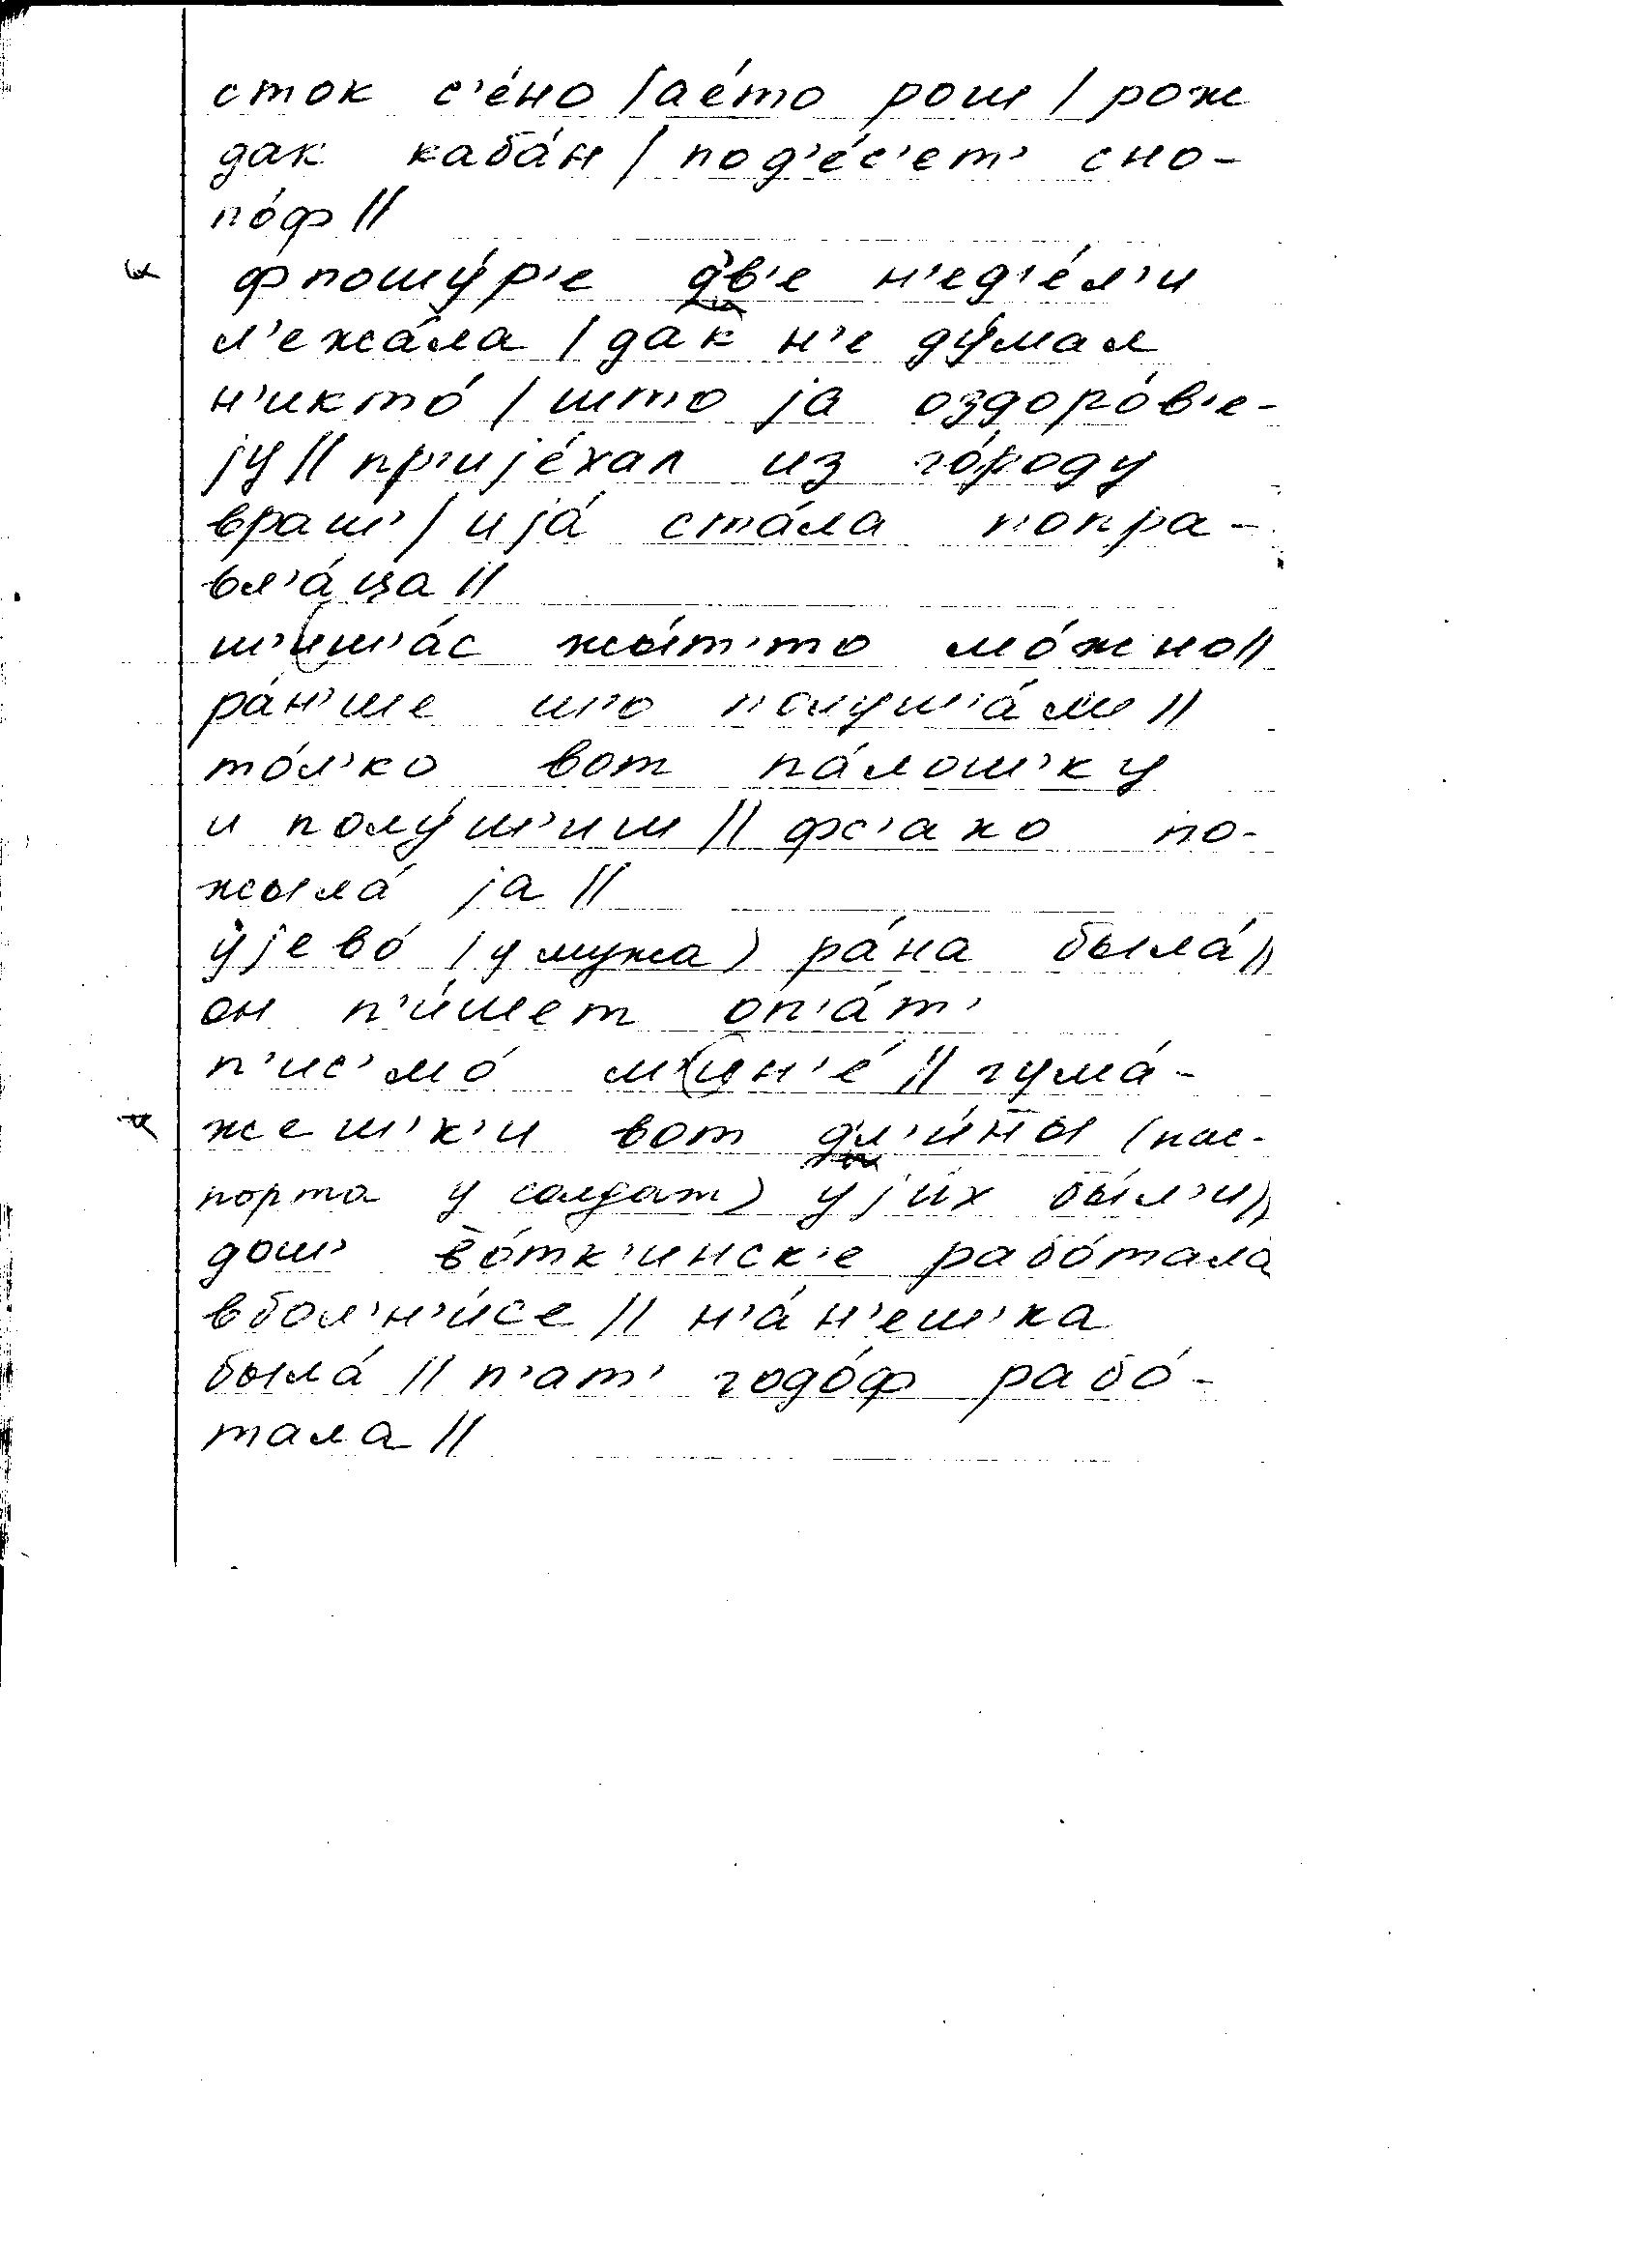 сток с'е́но / ае́то рош / рож
дак каба́н / под'е́с'ет' сно-
по́ф //
фпошу́р'е дв'е н'ед'е́л'и
л'ежа́ла / дак н'е ду́мал
н'икто́ / што jа оздоро́в'е-
jу // пр'иjе́хал из го́роду
враш' / иjа́ ста́ла попра-
вл'а́ца //
ш'иш'а́с жы́т'то мо́жно //
ра́н'ше полуш'а́л'и //
то́л'ко вот па́лош'ку
и полу́ш'иш // фс'ако по-
жыла́ jа //
уjево́ (у мужа) ра́на была́ //
он п'и́шет оп'а́т'
п'ис'мо́ м'ин'е́ // гума́-
жеш'к'и вот дл'и́ны (пас-
порта у солдат) уjи́х бы́л'и //
дош' во́тк'инск'е рабо́тала
вбол'н'и́се // н'а́н'еш'ка
была́ // п'ат' годо́ф рабо́-
тала //